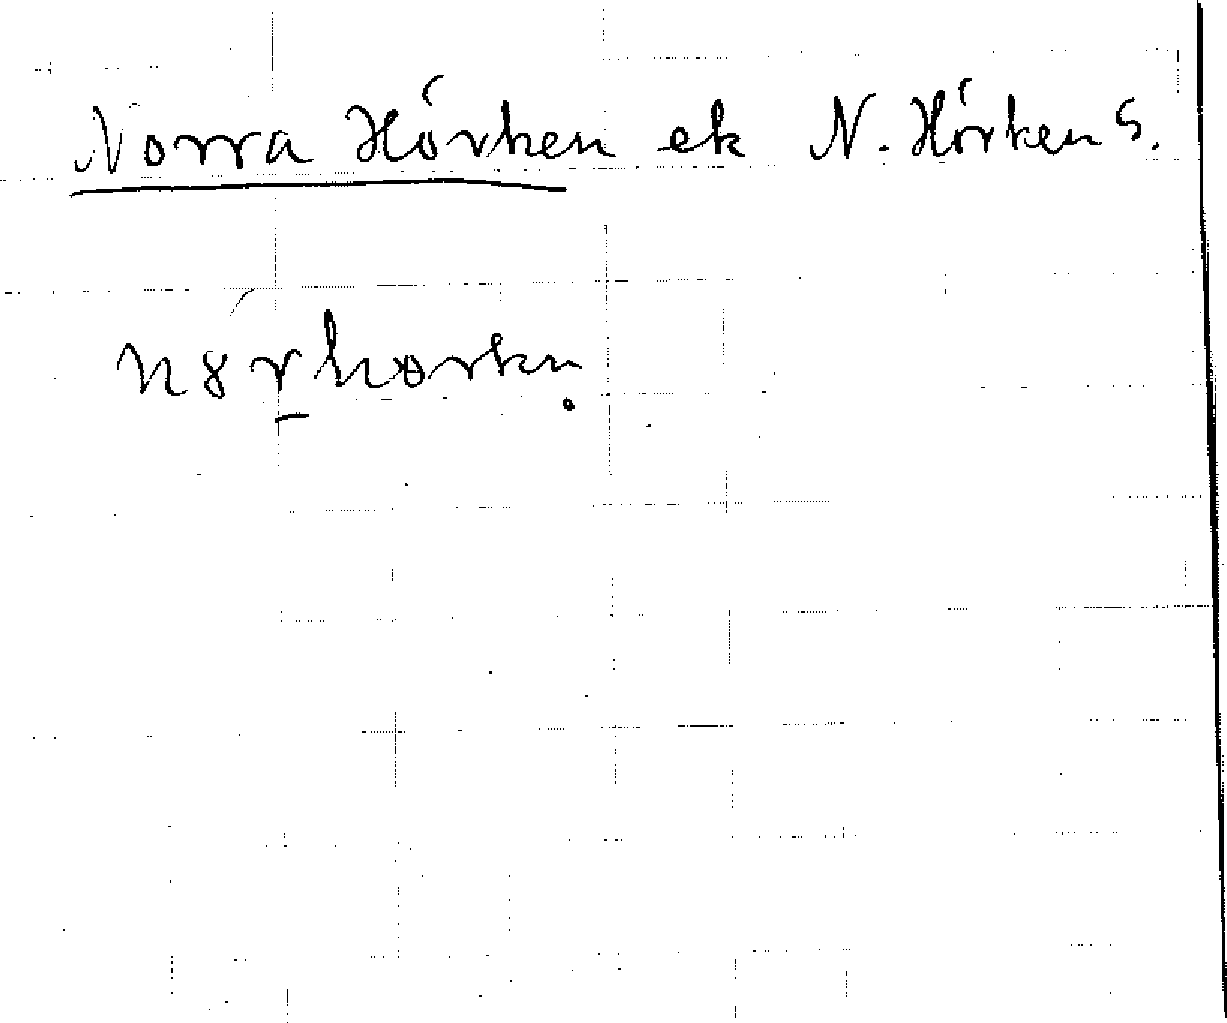 Norra Hörken ek N. Hörken S.
n8rhorkn